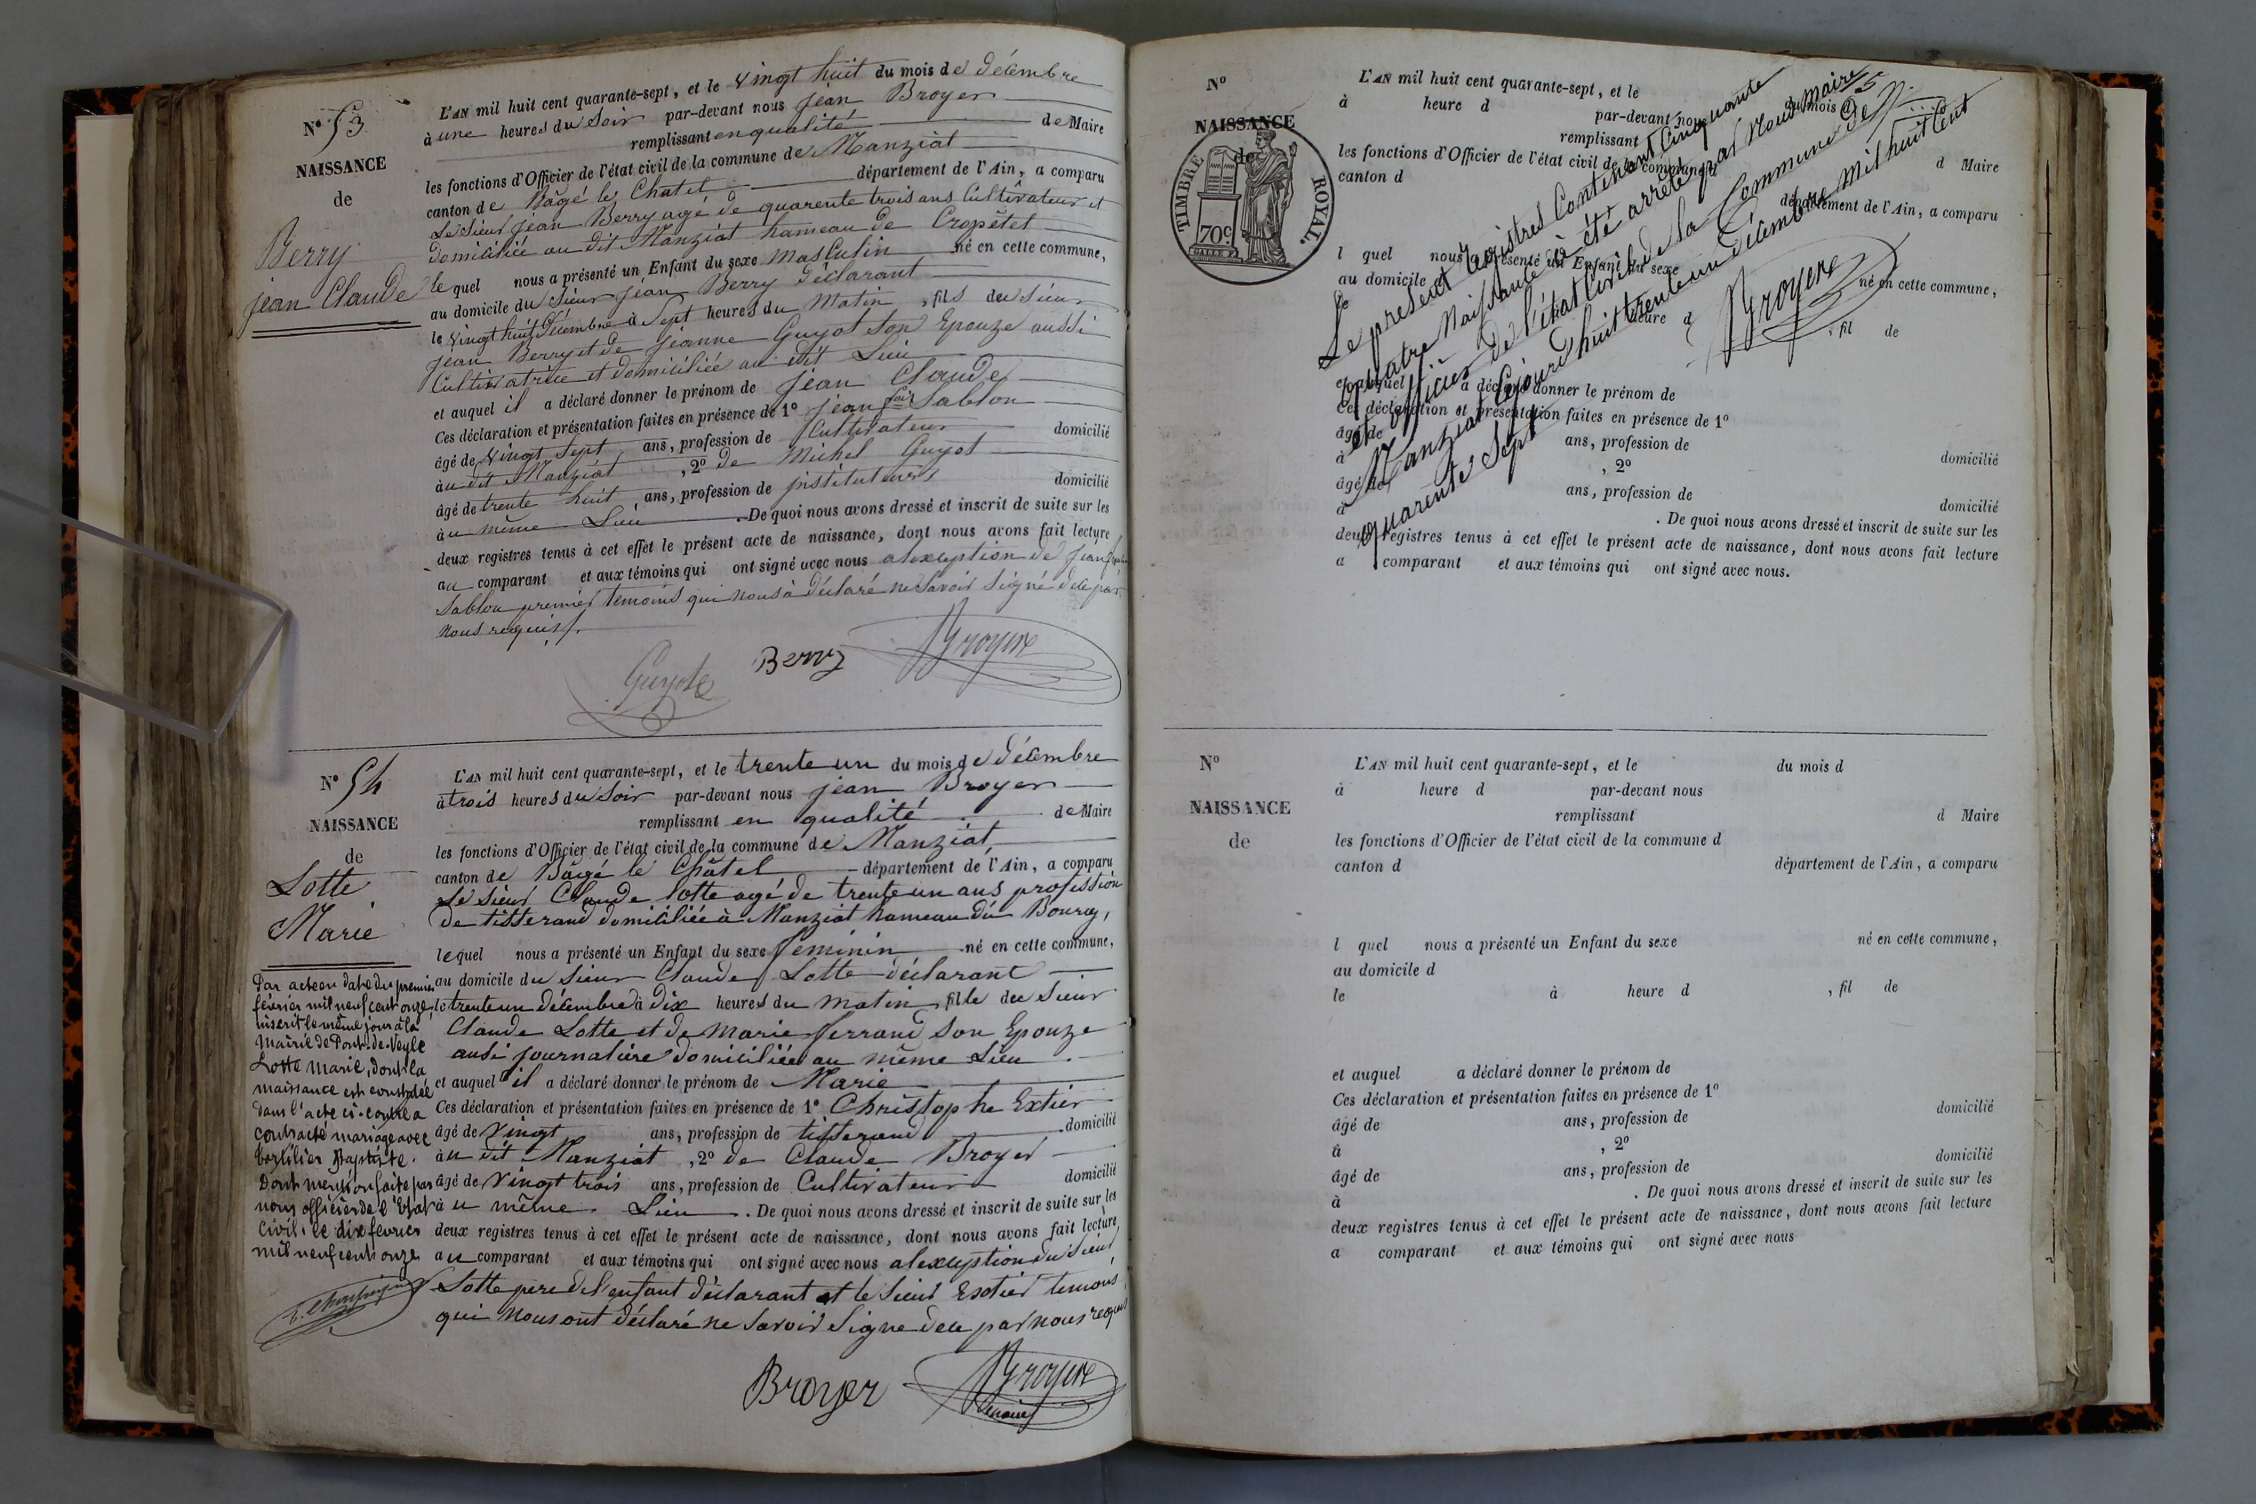 N° 53
NAISSANCE
de
Berry
jean Claude
L'AN mil huit cent quarante-sept, et le vingt huit du mois de décembre
à une heures du Soir par-devant nous jean Broyer
remplissant en qualité de Maire
les fonctions d'Officier de l'état civil de la commune de Manziat
canton de Bâgé le Chatel département de l'Ain, a comparu
Le Sieur jean Berry agé de quarente trois ans Cultivateur et
domiciliée au dit Manziat hameau de Cropétet
le quel nous a présenté un Enfant du sexe Masculin né en cette commune,
au domicile du Sieur jean Berry déclarant
le vingt huit Décembre à Sept heures du Matin, fils du Sieur
jean Berry et de jeanne Guyot Son Epouze aussi
Cultivatrice et domiciliée au dit Lieu
et auquel il a déclaré donner le prénom de jean Claude
Ces déclaration et présentation faites en présence de 1° jean Sablon
âgé de vingt Sept ans, profession de Cultivateur domicilié
à u dit Manziat, 2° de Michel Guyot
âgé de trente huit ans, profession de jnstituteurs domicilié
à u même Lieu. De quoi nous avons dressé et inscrit de suite sur les
deux registres tenus à cet effet le présent acte de naissance, dont nous avons fait lecture
au comparant et aux témoins qui ont signé avec nous alexeption de jean
Sablon premier temoins qui nous à déclaré ne Savoir Signé dele par
nous requis.
Guyot Berry Broyer
N° 54
NAISSANCE
de
Lotte
Marie
L'AN mil huit cent quarante-sept, et le trente un du mois de décembre
à trois heures du Soir par-devant nous jean Broyer
remplissant en qualité de Maire
les fonctions d'Officier de l'état civil de la commune de Manziat
canton de Bâgé le Châtel département de l'Ain, a comparu
Le Sieur Claude lotte agé de trente un ans profession
de tisserand domiciliée à Manziat hameau du Bourg,
le quel nous a présenté un Enfant du sexe feminin né en cette commune,
au domicile du Sieur Claude Lotte déclarant
le trente un décembre à dix heures du matin, fille du Sieur
Claude Lotte et de Marie ferrand Son Epouze
ausi journaliere domiciliée au même Lieu
et auquel il a déclaré donner le prénom de Marie
Ces déclaration et présentation faites en présence de 1° Christophe Extier
âgé de vingt ans, profession de tisserand domicilié
à u dit Manziat, 2° de Claude Broyer
âgé de vingt trois ans, profession de Cultivateur domicilié
à u même Lieu. De quoi nous avons dressé et inscrit de suite sur les
deux registres tenus à cet effet le présent acte de naissance, dont nous avons fait lecture
au comparant et aux témoins qui ont signé avec nous alexeption du Sieur
Lotte pere de l'enfant déclarant et le Sieur Extier temoins
qui nous ont déclaré ne Savoir Signe dele par nous requis
Broyer Broyer
maire
Par acte en date du premier
février mil neuf cent onze,
inscrit le même jour à la
mairie de Pont-de-Veyle
Lotte Marie, dont la
naissance est constatée
dans l'acte ci-contre a
contracté mariage avec
Baptiste.
Dont mention faite par
nous officier de l'Etat
civil, le dix février
mil neuf cent onze
N°
NAISSANCE
de
TIMBRE ROYAL.
70c
L'AN mil huit cent quarante-sept, et le du mois d
à heure d par-devant nous
remplissant d Maire
les fonctions d'Officier de l'état civil de la commune d
canton d département de l'Ain, a comparu
l quel nous a présenté un Enfant du sexe né en cette commune,
au domicile d
le à heure d , fil de
et auquel a déclaré donner le prénom de
Ces déclaration et présentation faites en présence de 1°
âgé de ans, profession de domicilié
à , 2°
âgé de ans, profession de domicilié
à . De quoi nous avons dressé et inscrit de suite sur les
deux registres tenus à cet effet le présent acte de naissance, dont nous avons fait lecture
a comparant et aux témoins qui ont signé avec nous.
Le present registres Contenant Cinquante
quatre Naissance à été arrété par Nous Maire
et officier de l'état Civil de la Commune de
Manziat Cejourd'huit trente un décembre Mil huit Cent
quarente Sept
Broyer
N°
NAISSANCE
de
L'AN mil huit cent quarante-sept, et le du mois d
à heure d par-devant nous
remplissant d Maire
les fonctions d'Officier de l'état civil de la commune d
canton d département de l'Ain, a comparu
l quel nous a présenté un Enfant du sexe né en cette commune,
au domicile d
le à heure d , fil de
et auquel a déclaré donner le prénom de
Ces déclaration et présentation faites en présence de 1°
âgé de ans, profession de domicilié
à , 2°
âgé de ans, profession de domicilié
à . De quoi nous avons dressé et inscrit de suite sur les
deux registres tenus à cet effet le présent acte de naissance, dont nous avons fait lecture
a comparant et aux témoins qui ont signé avec nous